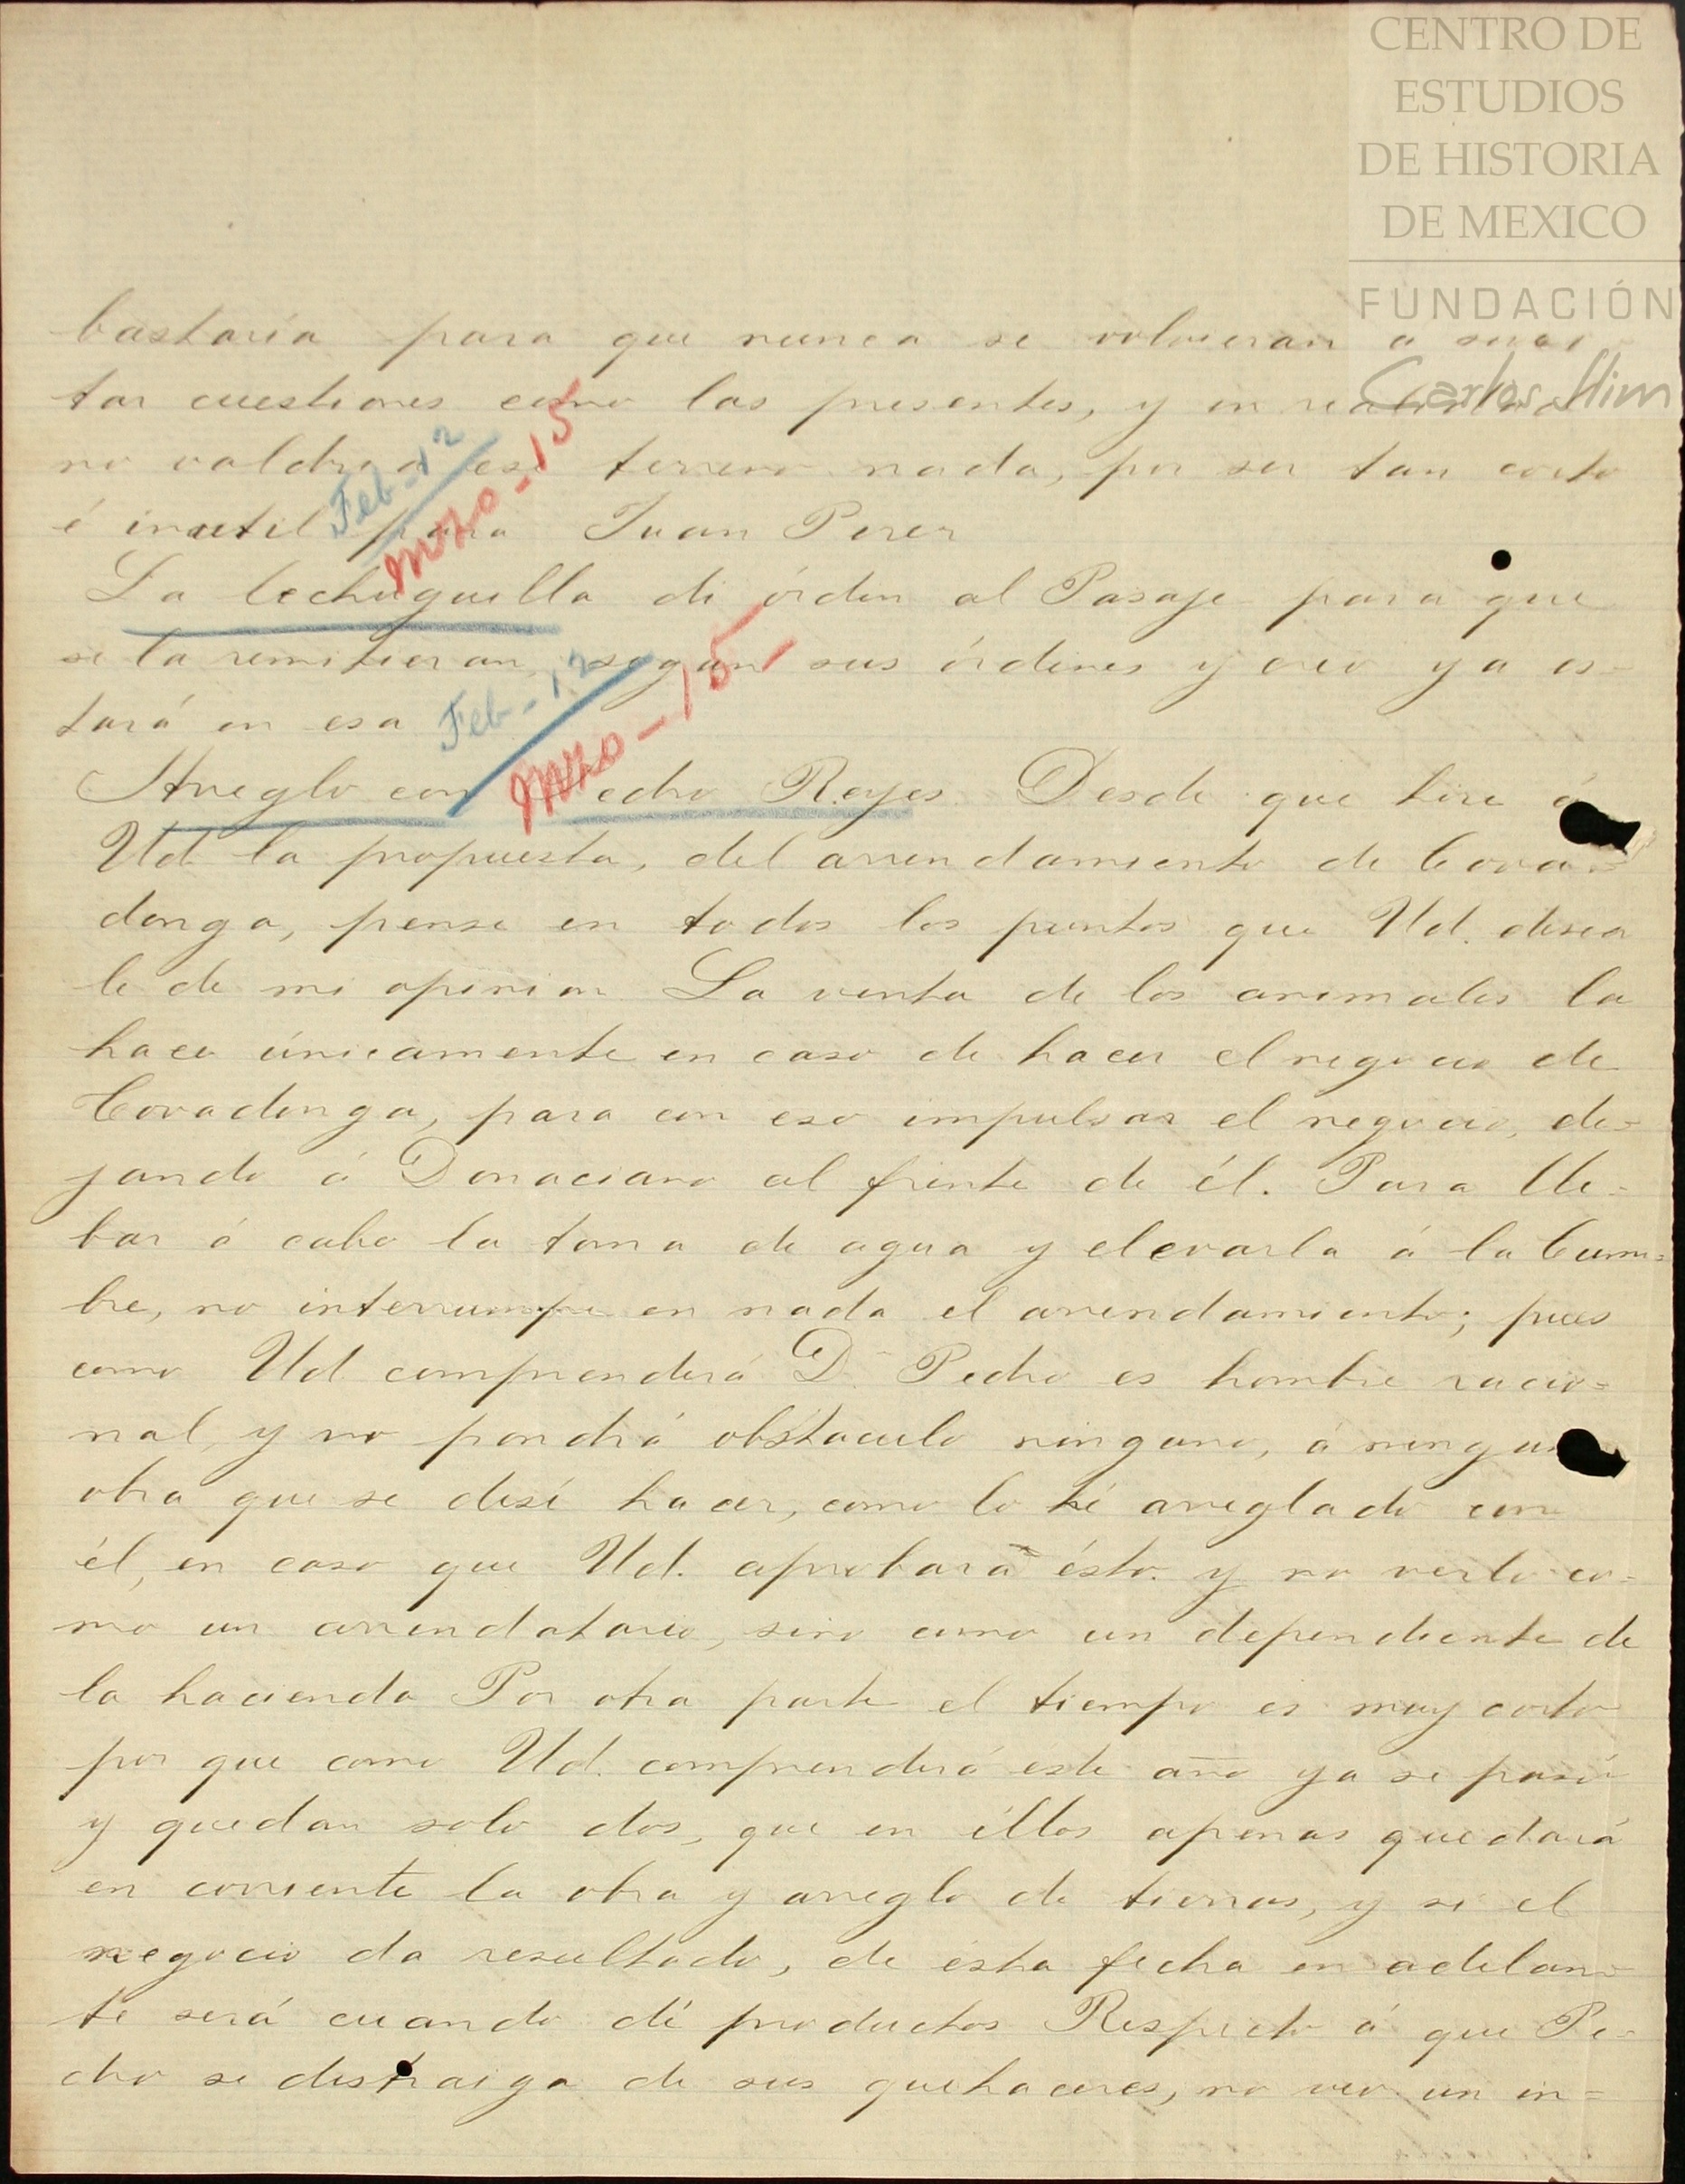 CENTRO DE
ESTUDIOS
DE HISTORIA
DE MEXICO
FUNDACIÓN
Carlos Slim
bastaria para que nunca se volvieran a susci
tar cuestiones como las presentes, y en realidad
no valdria ese terreno nada, por ser tan corto
é inutil para Juan Perez
Feb-12
Mzo-15
La lechuguilla di órden al Pasaje para que
se la remitieran, segun sus órdenes y creo ya es-
tará en esa
Feb-12
Mzo-15
Arreglo con Pedro Reyes Desde que hice á
Ud la propuesta, del arrendamiento de Cova-
donga, pense en todos los puntos que Ud. desea
le de mi opinion La venta de los animales la
hace únicamente en caso de hacer el negocio de
Covadonga, para con eso impulsar el negocio, de-
jando á Donaciano al frente de él. Para lle-
bar á cabo la toma de agua y elevarla á la Cum=
bre, no interrumpe en nada el arrendamiento; pues
como Ud comprenderá Dn Pedro es hombre racio=
nal, y no pondrá obstaculo ninguno, á ninguna
obra que se desé hacer, como lo hé arreglado con
él, en caso que Ud. aprobara ésto. y no verlo co=
mo un arrendatario, sino como un dependiente de
la hacienda Por otra parte el tiempo es muy corto
por que como Ud. comprenderá éste año ya se pasó
y quedan solo dos, que en éllos apenas quedará
en corriente la obra y arreglo de tierras, y si el
negocio da resultado, de ésta fecha en adelan-
te será cuando dé productos Respecto á que Pe-
dro se distraiga de sus quehaceres, no veo un in=